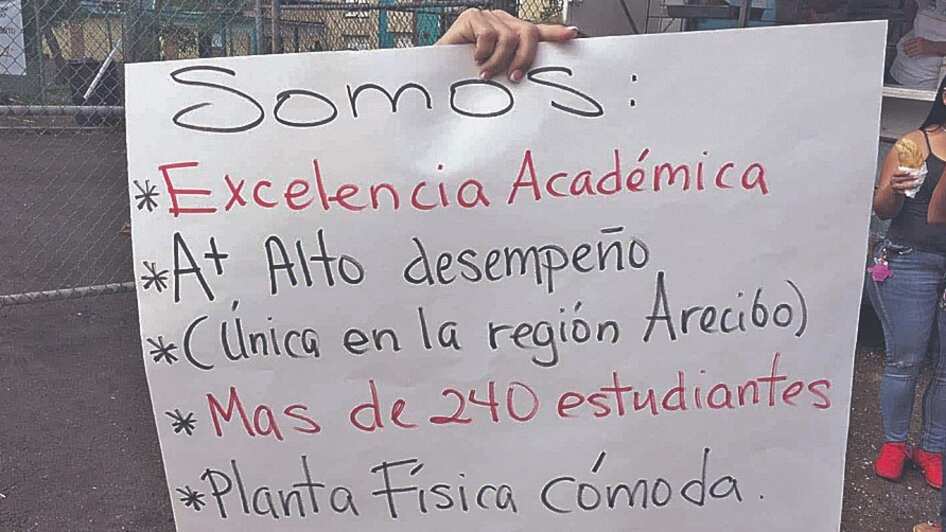 Somos:
*Excelencia Académica
*A+ Alto desempeño
*(Única en la región Arecibo)
*Mas de 240 estudiantes
*Planta Física cómoda.